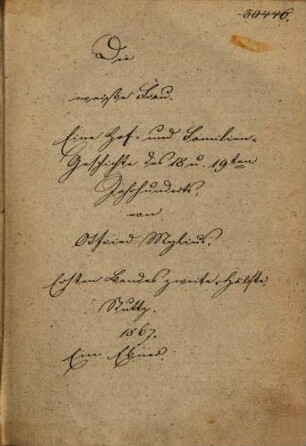 30446.
Die
weiße Frau.
Eine Hof- und Familien-
Geschichte des 18 u. 19ten
Jahrhunderts,
von
Otfried Mylius.
Ersten Bandes zweite Hälfte
Stuttg.
1867.